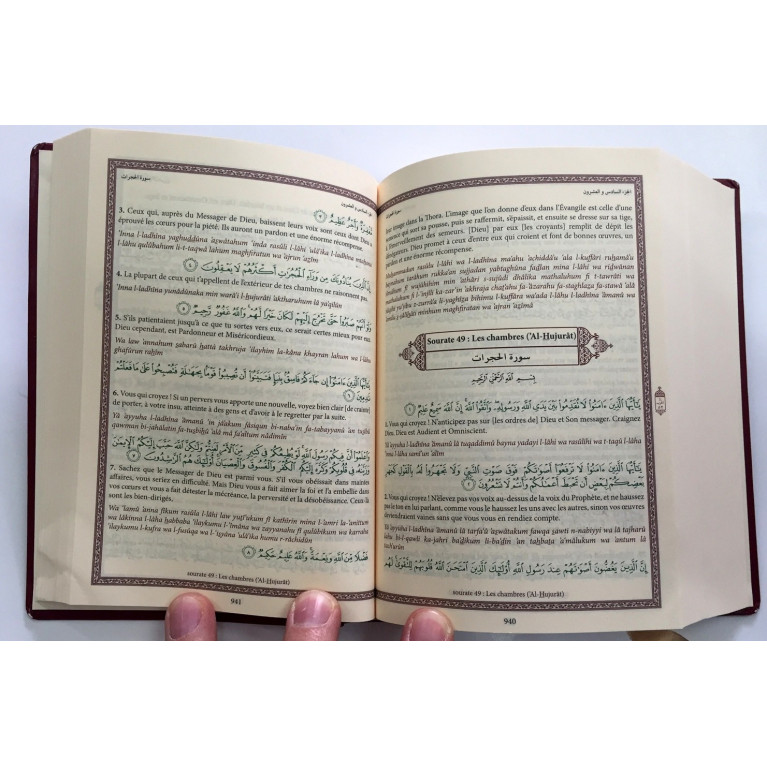 الجزء السادس و العشرون
leur image dans la Thora. L'image que l'on donne d'eux dans l'Évangile est celle d'une
semence qui sort sa pousse, puis se raffermit, s'épaissit, et ensuite se dresse sur sa tige,
à l'émerveillement des semeurs. [Dieu] par eux [les croyants] remplit de dépit les
mécréants. Dieu promet à ceux d'entre eux qui croient et font de bonnes œuvres, un
pardon et une énorme récompense.
Muḥammadun rasūlu l-lāhi wa l-ladhīna ma'ahu 'achiddā'u 'ala l-kuffāri ruḥamā'u
Sourate 49 : Les chambres ('Al-Ḥujurāt)
سورة الحجرات
بِسْمِ اللَّهِ الرَّحْمَٰنِ الرَّحِيمِ
يَٰٓأَيُّهَا ٱلَّذِينَ ءَامَنُوا۟ لَا تُقَدِّمُوا۟ بَيْنَ يَدَىِ ٱللَّهِ وَرَسُولِهِۦ ۖ وَٱتَّقُوا۟ ٱللَّهَ ۚ إِنَّ ٱللَّهَ سَمِيعٌ عَلِيمٌ ١
1. Vous qui croyez ! N'anticipez pas sur [les ordres de] Dieu et Son messager. Craignez
Dieu. Dieu est Audient et Omniscient.
Yā 'ayyuha l-ladhīna 'āmanū lā tuqaddimū bayna yadayi l-lāhi wa rasūlihi wa t-taqū l-lāha
'inna l-lāha samī'un 'alīm
يَٰٓأَيُّهَا ٱلَّذِينَ ءَامَنُوا۟ لَا تَرْفَعُوٓا۟ أَصْوَٰتَكُمْ فَوْقَ صَوْتِ ٱلنَّبِىِّ وَلَا تَجْهَرُوا۟ لَهُۥ بِٱلْقَوْلِ كَجَهْرِ
بَعْضِكُمْ لِبَعْضٍ أَن تَحْبَطَ أَعْمَٰلُكُمْ وَأَنتُمْ لَا تَشْعُرُونَ ٢
2. Vous qui croyez ! N'élevez pas vos voix au-dessus de la voix du Prophète, et ne haussez
pas le ton en lui parlant, comme vous le haussez les uns avec les autres, sinon vos œuvres
deviendraient vaines sans que vous vous en rendiez compte.
Yā 'ayyuha l-ladhīna 'āmanū lā tarfa'ū 'aṣwātakum fawqa ṣawti n-nabiyyi wa lā tajharū
lahū bi-l-qawli ka-jahri ba'ḍikum li-ba'ḍin 'an taḥbaṭa a'mālukum wa antum lā
tach'urūn
إِنَّ ٱلَّذِينَ يَغُضُّونَ أَصْوَٰتَهُمْ عِندَ رَسُولِ ٱللَّهِ أُو۟لَٰٓئِكَ ٱلَّذِينَ ٱمْتَحَنَ ٱللَّهُ قُلُوبَهُمْ لِلتَّقْوَىٰ ۚ لَهُم
sourate 49 : Les chambres ('Al-Ḥujurāt)
940
الجزء السادس و العشرون
سورة الحجرات
مَّغْفِرَةٌ وَأَجْرٌ عَظِيمٌ ٣
3. Ceux qui, auprès du Messager de Dieu, baissent leurs voix sont ceux dont Dieu a
éprouvé les cœurs pour la piété. Ils auront un pardon et une énorme récompense.
'Inna l-ladhīna yaghuḍḍūna 'aṣwātahum 'inda rasūli l-lāhi 'ulā'ika l-ladhīna mtaḥana
l-lāhu qulūbahum li-t-taqwā lahum maghfiratun wa 'ajrun 'aẓīm
إِنَّ ٱلَّذِينَ يُنَادُونَكَ مِن وَرَآءِ ٱلْحُجُرَٰتِ أَكْثَرُهُمْ لَا يَعْقِلُونَ ٤
4. La plupart de ceux qui t'appellent de l'extérieur de tes chambres ne raisonnent pas.
'Inna l-ladhīna yunādūnaka min warā'i l-ḥujurāti 'aktharuhum lā ya'qilūn
وَلَوْ أَنَّهُمْ صَبَرُوا۟ حَتَّىٰ تَخْرُجَ إِلَيْهِمْ لَكَانَ خَيْرًا لَّهُمْ ۚ وَٱللَّهُ غَفُورٌ رَّحِيمٌ ٥
5. S'ils patientaient jusqu'à ce que tu sortes vers eux, ce serait certes mieux pour eux.
Dieu cependant, est Pardonneur et Miséricordieux.
Wa law 'annahum ṣabarū ḥattā takhruja 'ilayhim la-kāna khayran lahum wa l-lāhu
ghafūrun raḥīm
يَٰٓأَيُّهَا ٱلَّذِينَ ءَامَنُوٓا۟ إِن جَآءَكُمْ فَاسِقٌۢ بِنَبَإٍ فَتَبَيَّنُوٓا۟ أَن تُصِيبُوا۟ قَوْمًۢا بِجَهَٰلَةٍ فَتُصْبِحُوا۟ عَلَىٰ مَا فَعَلْتُمْ
نَٰدِمِينَ ٦
6. Vous qui croyez ! Si un pervers vous apporte une nouvelle, voyez bien clair [de crainte]
de porter, à votre insu, atteinte à des gens et d'avoir à le regretter par la suite.
Yā 'ayyuha l-ladhīna 'āmanū 'in jā'akum fāsiqun bi-naba'in fa-tabayyanū 'an tuṣībū
qawman bi-jahālatin fa-tuṣbiḥū 'alā mā fa'altum nādimīn
وَٱعْلَمُوٓا۟ أَنَّ فِيكُمْ رَسُولَ ٱللَّهِ ۚ لَوْ يُطِيعُكُمْ فِى كَثِيرٍ مِّنَ ٱلْأَمْرِ لَعَنِتُّمْ وَلَٰكِنَّ ٱللَّهَ حَبَّبَ إِلَيْكُمُ ٱلْإِيمَٰنَ
وَزَيَّنَهُۥ فِى قُلُوبِكُمْ وَكَرَّهَ إِلَيْكُمُ ٱلْكُفْرَ وَٱلْفُسُوقَ وَٱلْعِصْيَانَ ۚ أُو۟لَٰٓئِكَ هُمُ ٱلرَّٰشِدُونَ ٧
7. Sachez que le Messager de Dieu est parmi vous. S'il vous obéissait dans maintes
affaires, vous seriez en difficulté. Mais Dieu vous a fait aimer la foi et l'a embellie dans
vos cœurs et vous a fait détester la mécréance, la perversité et la désobéissance. Ceux-là
sont les bien-dirigés,
Wa 'lamū 'anna fīkum rasūla l-lāhi law yuṭī'ukum fī kathīrin mina l-'amri la-'anittum
wa lākinna l-lāha ḥabbaba 'ilaykumu l-'īmāna wa zayyanahu fī qulūbikum wa karraha
'ilaykumu l-kufra wa l-fusūqa wa l-'iṣyāna 'ulā'ika humu r-rāchidūn
فَضْلًا مِّنَ ٱللَّهِ وَنِعْمَةً ۚ وَٱللَّهُ عَلِيمٌ حَكِيمٌ ٨
sourate 49 : Les chambres ('Al-Ḥujurāt)
941